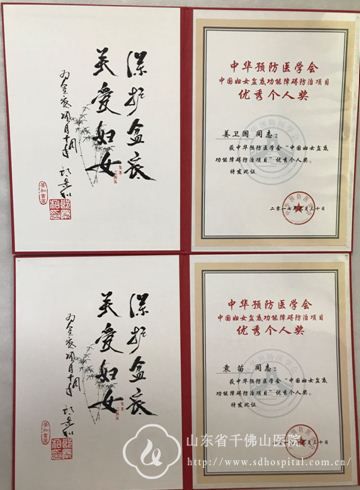 深护盆底
关爱妇女
中华预防医学会
中国妇女盆底功能障碍防治项目
优秀个人奖
姜卫国 同志:
获中华预防医学会“中国妇女盆底
功能障碍防治项目”优秀个人奖。
特发此证
深护盆底
关爱妇女
中华预防医学会
中国妇女盆底功能障碍防治项目
优秀个人奖
袁苗 同志:
获中华预防医学会“中国妇女盆底
功能障碍防治项目”优秀个人奖。
特发此证
山东省千佛山医院
http://www.sdhospital.com.cn